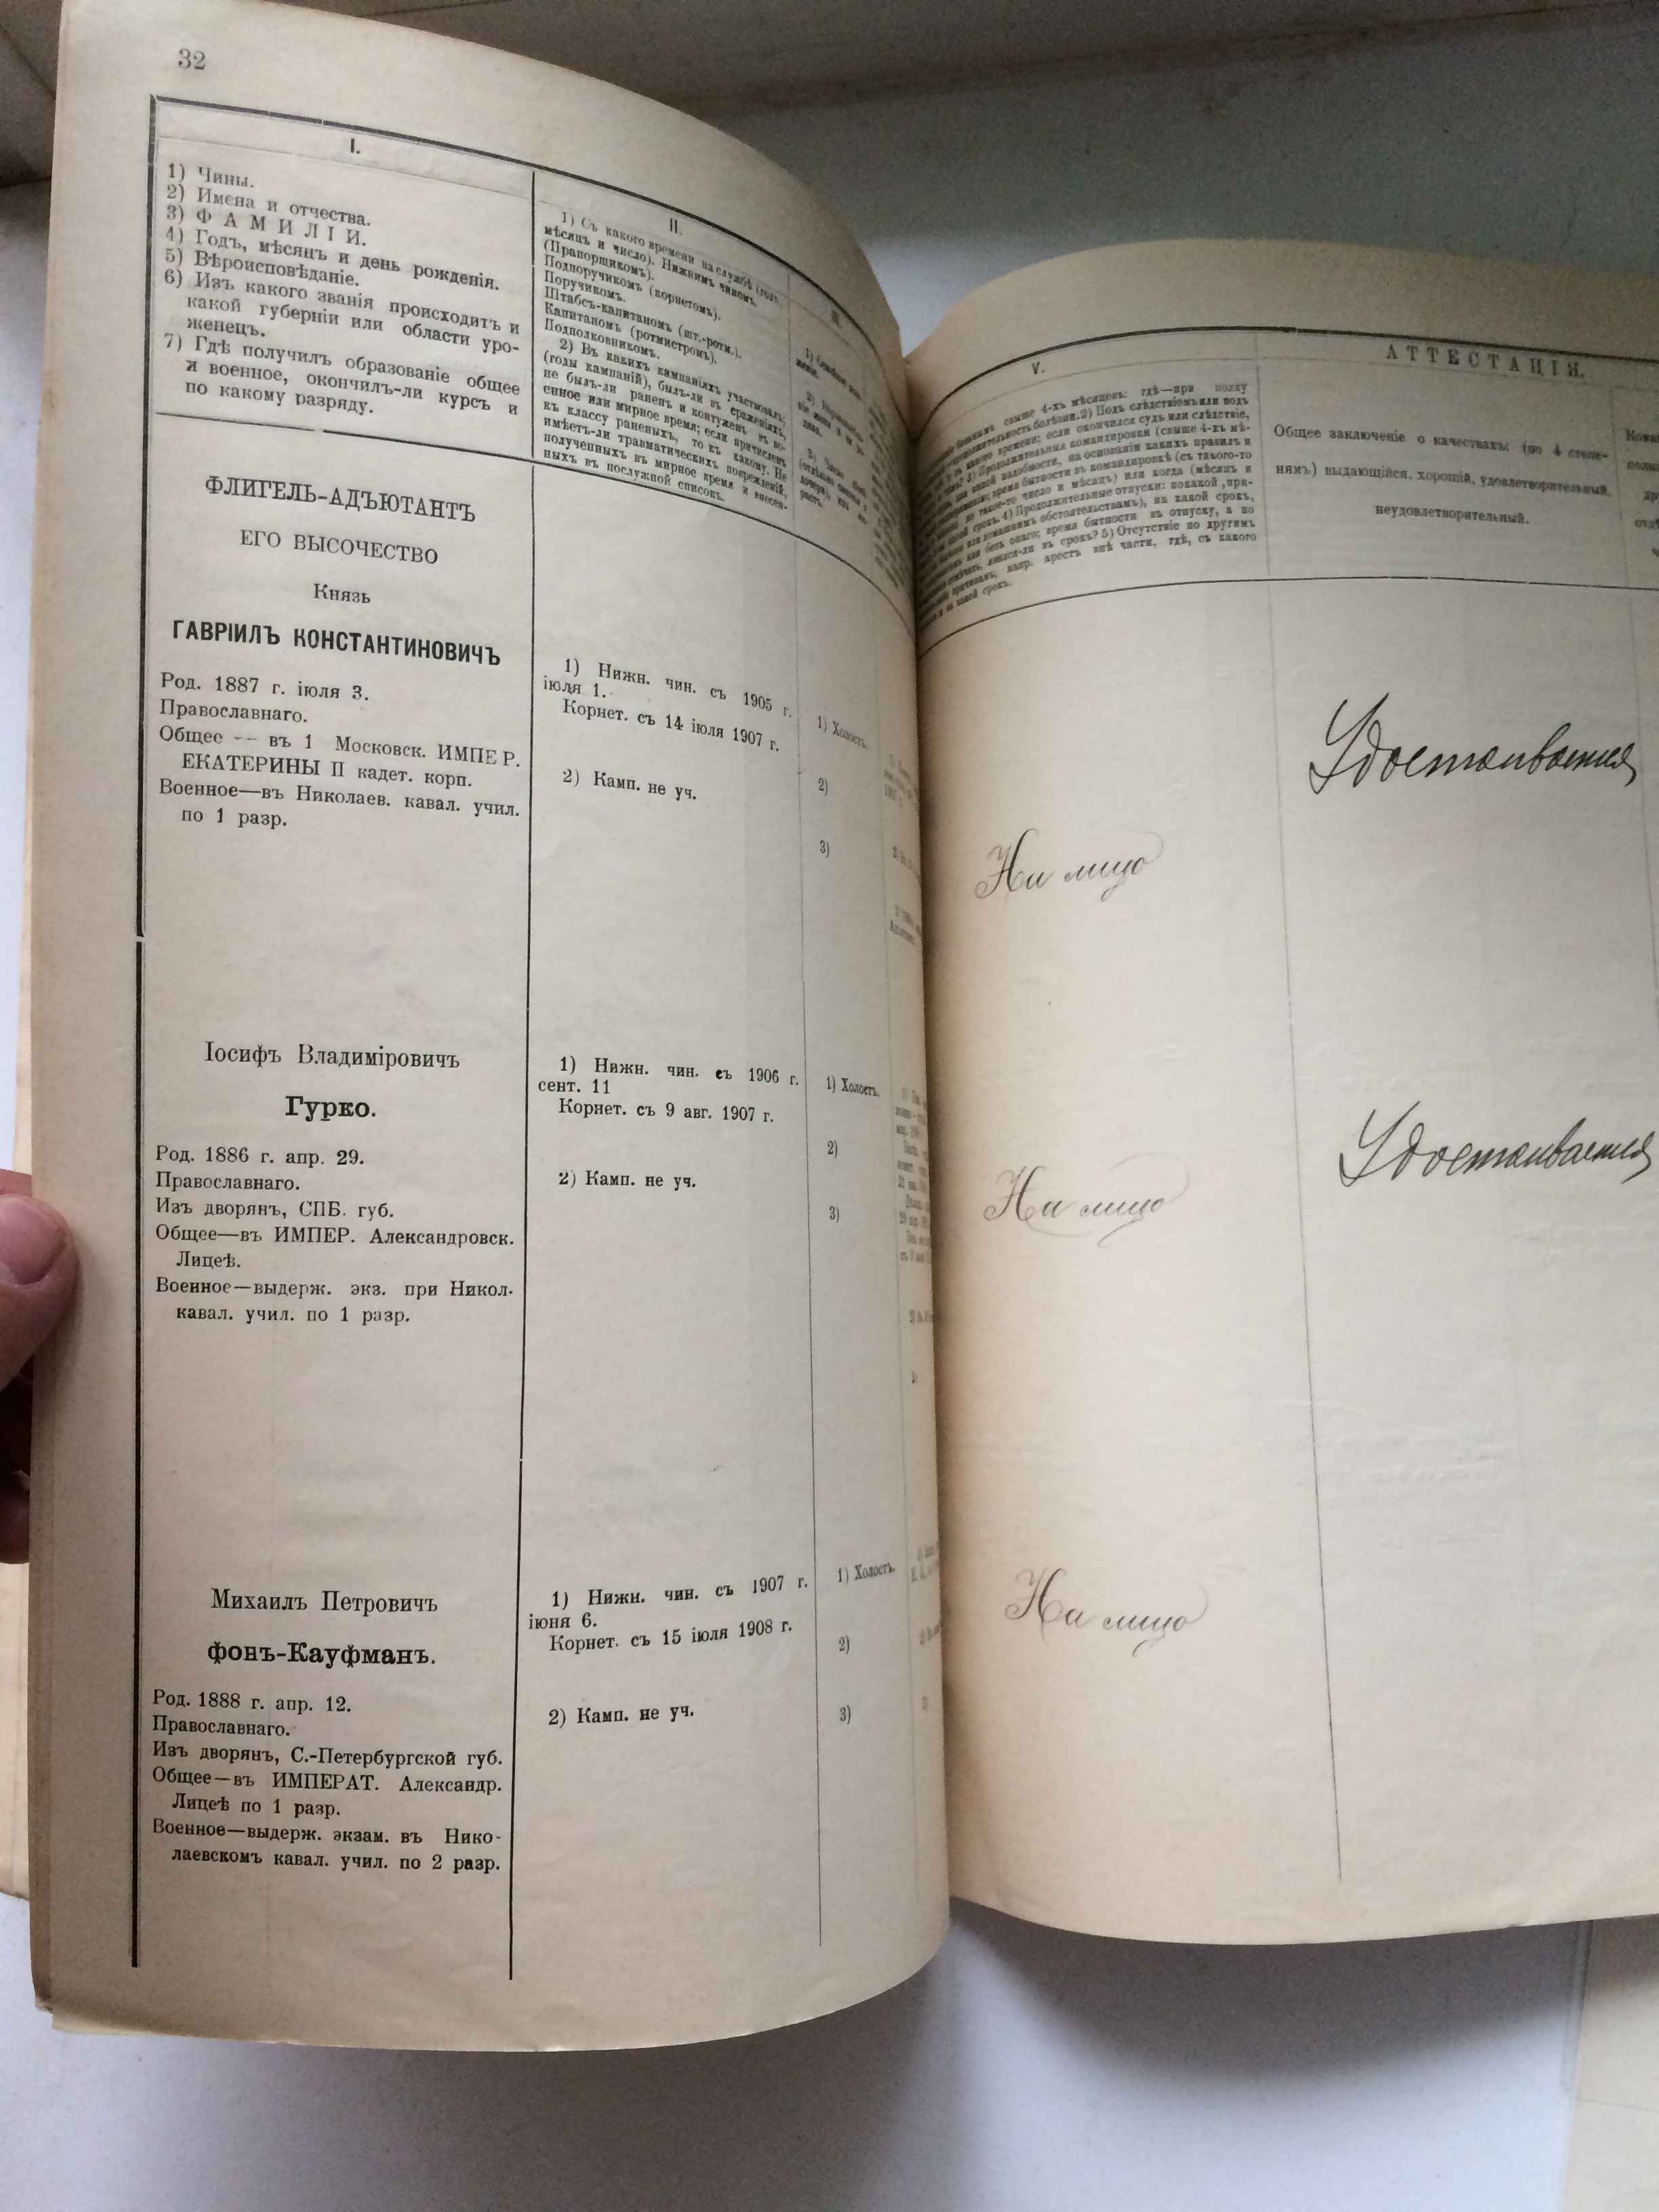 32
I.
1) Чины.
2) Имена и отчества.
3) ФАМИЛІИ.
4) Годъ, мѣсяцъ и день рожденія.
5) Вѣроисповѣданіе.
6) Изъ какого званія происходитъ и
какой губерніи или области уро-
женецъ.
7) Гдѣ получилъ образованіе общее
и военное, окончилъ-ли курсъ и
по какому разряду.
II.
1) Съ какого времени на службѣ (годъ,
мѣсяцъ и число). Нижнимъ чиномъ.
(Прапорщикомъ).
Подпоручикомъ (корнетомъ).
Поручикомъ.
Штабсъ-капитаномъ (шт.-ротм.).
Капитаномъ (ротмистромъ).
Подполковникомъ.
2) Въ какихъ кампаніяхъ участвовалъ
(годы кампаній), былъ-ли въ сраженіяхъ,
не былъ-ли раненъ и контуженъ въ во-
енное или мирное время; если причисленъ
къ классу раненыхъ, то къ какому. Не
имѣетъ-ли травматическихъ поврежденій,
полученныхъ въ мирное время и внесен-
ныхъ въ послужной списокъ.
III.
ФЛИГЕЛЬ-АДЪЮТАНТЪ
ЕГО ВЫСОЧЕСТВО
Князь
ГАВРІИЛЪ КОНСТАНТИНОВИЧЪ
Род. 1887 г. іюля 3.
Православнаго.
Общее -- въ 1 Московск. ИМПЕР.
ЕКАТЕРИНЫ II кадет. корп.
Военное—въ Николаев. кавал. учил.
по 1 разр.
1) Нижн. чин. съ 1905 г.
іюля 1.
Корнет. съ 14 іюля 1907 г.
2) Камп. не уч.
1) Холостъ.
2)
3)
Іосифъ Владиміровичъ
Гурко.
Род. 1886 г. апр. 29.
Православнаго.
Изъ дворянъ, СПБ. губ.
Общее—въ ИМПЕР. Александровск.
Лицеѣ.
Военное—выдерж. экз. при Никол.
кавал. учил. по 1 разр.
1) Нижн. чин. съ 1906 г.
сент. 11
Корнет. съ 9 авг. 1907 г.
2) Камп. не уч.
1) Холостъ.
2)
3)
Михаилъ Петровичъ
фонъ-Кауфманъ.
Род. 1888 г. апр. 12.
Православнаго.
Изъ дворянъ, С.-Петербургской губ.
Общее—въ ИМПЕРАТ. Александр.
Лицеѣ по 1 разр.
Военное—выдерж. экзам. въ Нико-
лаевскомъ кавал. учил. по 2 разр.
1) Нижн. чин. съ 1907 г.
іюня 6.
Корнет. съ 15 іюля 1908 г.
2) Камп. не уч.
1) Холостъ.
2)
3)
V.
свыше 4-хъ мѣсяцевъ: гдѣ—при полку
болѣзни. 2) Подъ слѣдствіемъ или подъ
времени; если окончился судъ или слѣдствіе,
3) Продолжительныя командировки (свыше 4-хъ мѣ-
надобности, на основаніи какихъ правилъ и
время бытности въ командировкѣ (съ такого-то
такое-то число и мѣсяцъ) или когда (мѣсяцъ и
срокъ. 4) Продолжительные отпуски: по какой „при-
домашнимъ обстоятельствамъ), на какой срокъ,
время бытности въ отпуску, а по
въ срокъ? 5) Отсутствіе по другимъ
напр. арестъ внѣ части, гдѣ, съ какого
и на какой срокъ.
АТТЕСТАЦІЯ.
Общее заключеніе о качествахъ: (по 4 степе-
нямъ) выдающійся, хорошій, удовлетворительный,
неудовлетворительный.
На лицо
Удостаивается
На лицо
Удостаивается
На лицо